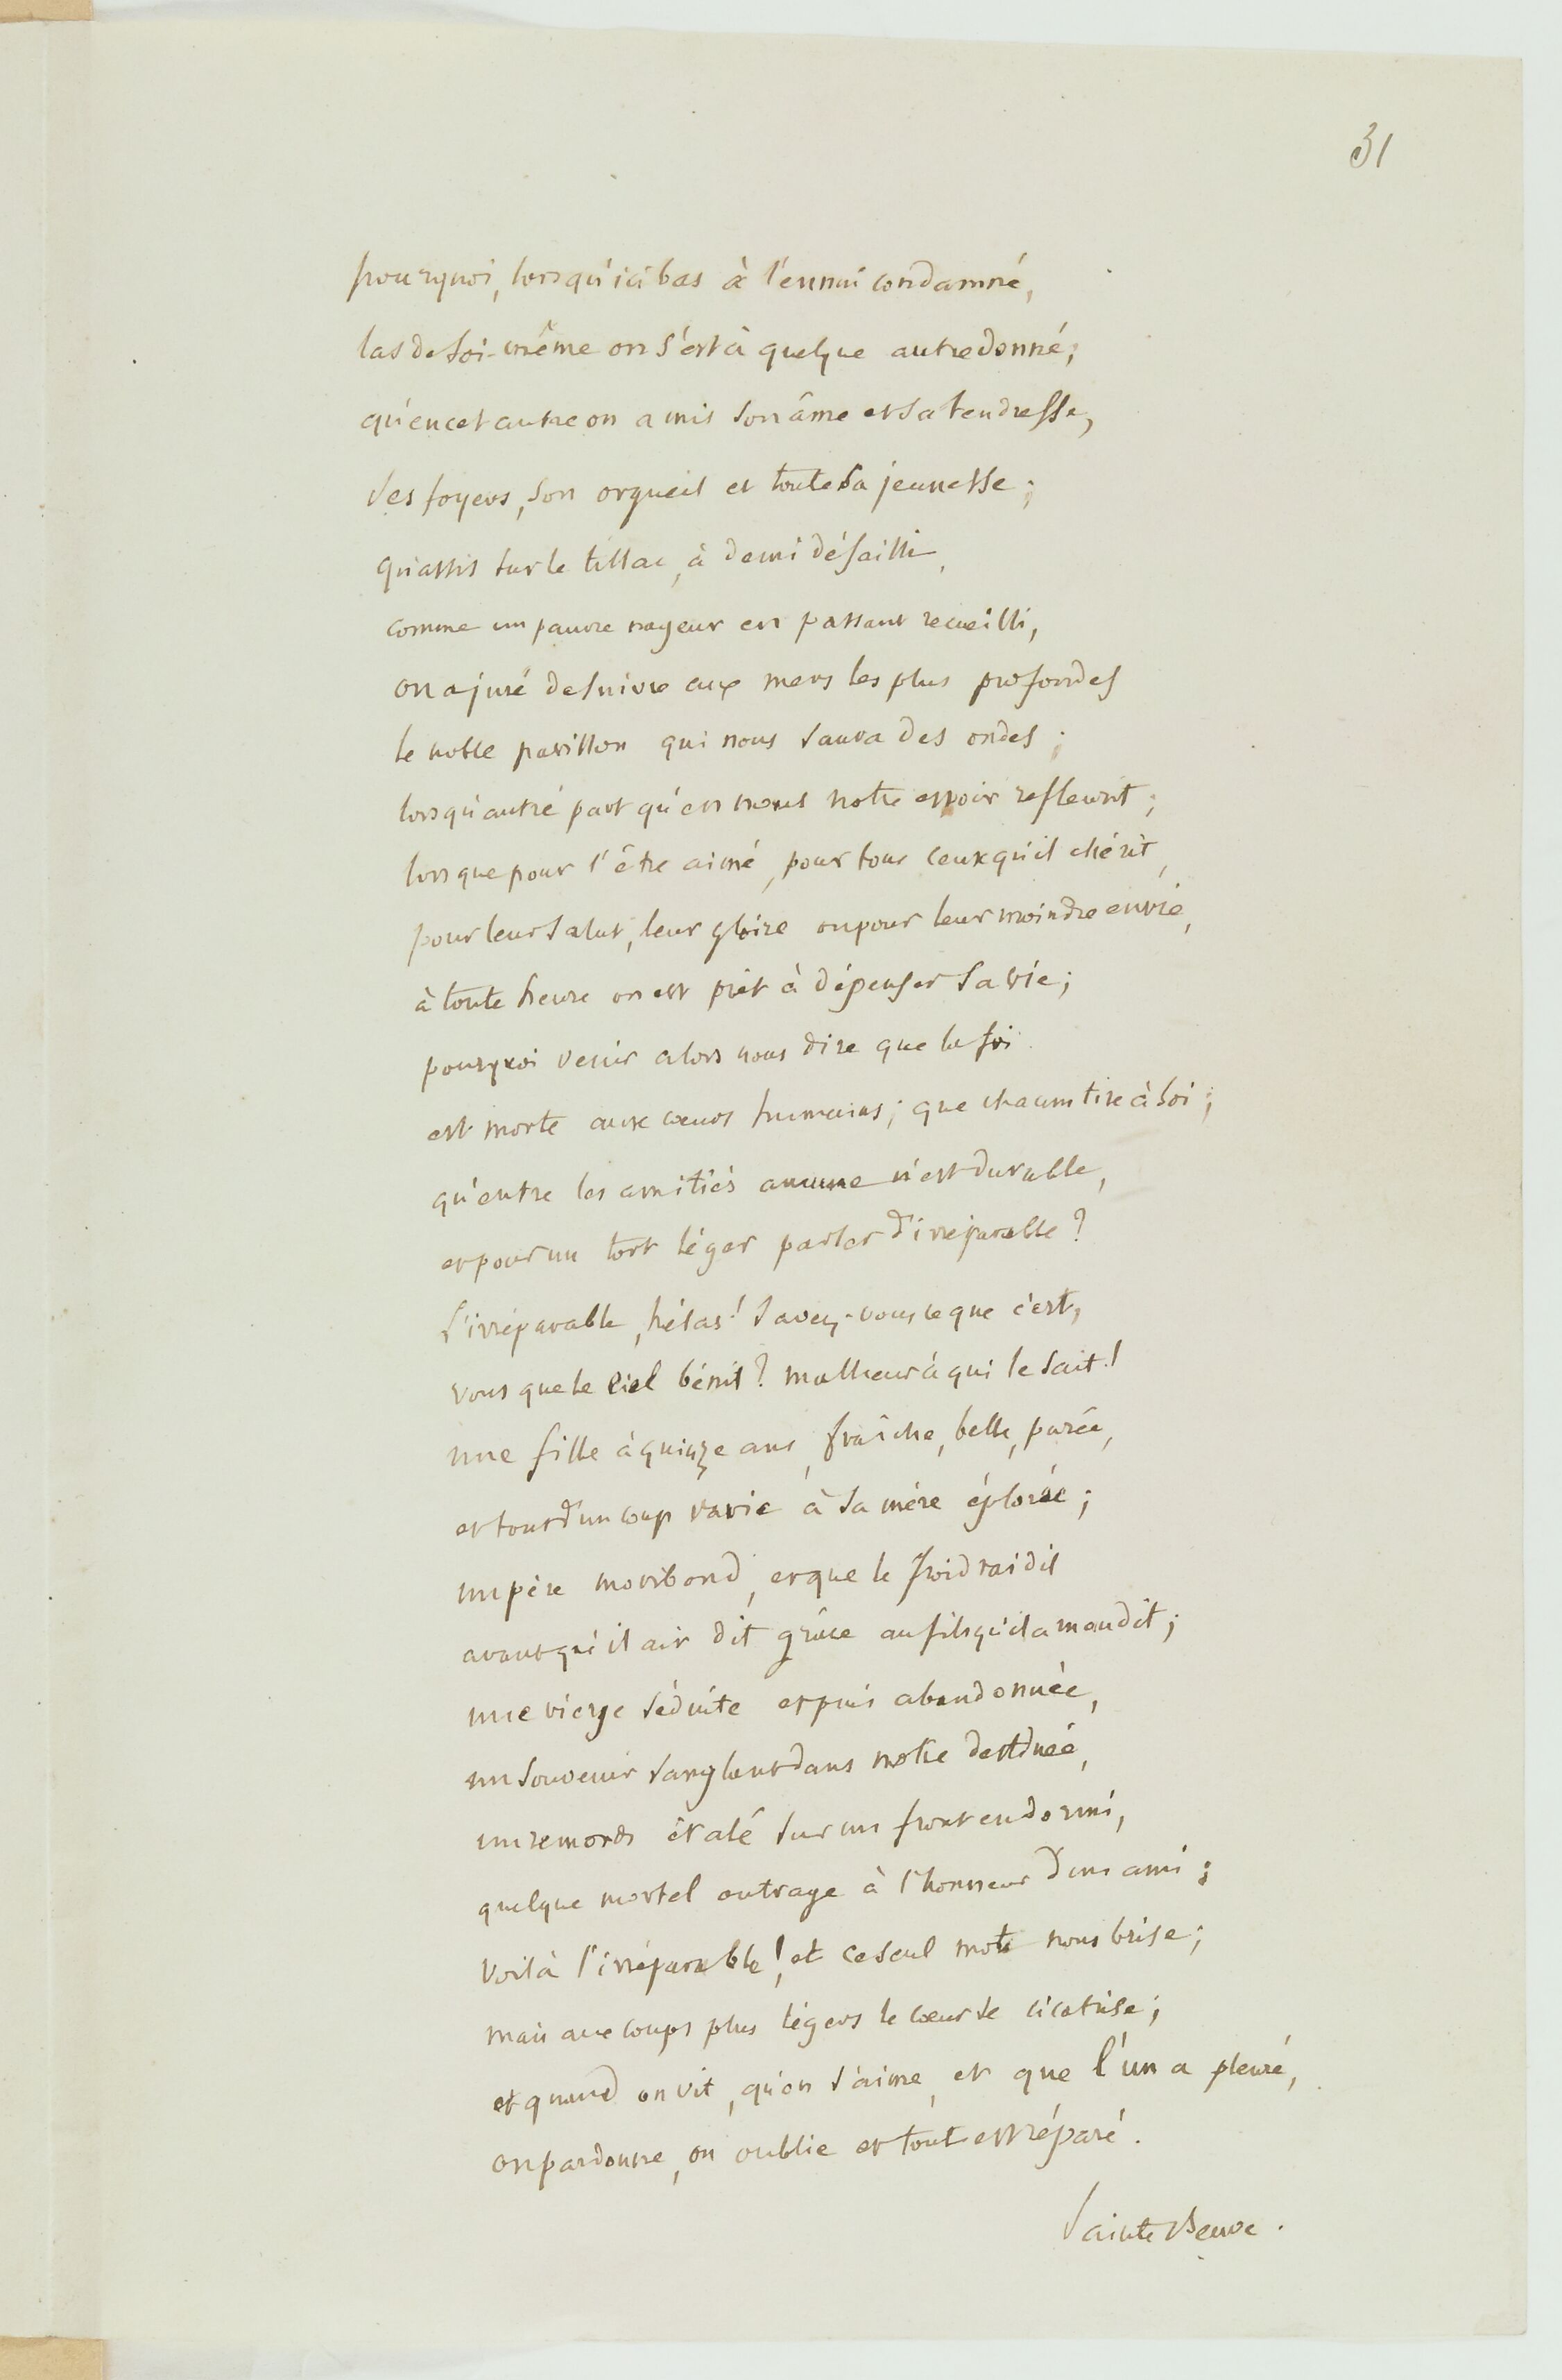 31
pourquoi, lorsqu'ici bas à l'ennui condamné,
las de soi-même on s'est à quelque autre donné;
qu'en cet autre on a mis son âme et sa tendresse,
ses foyers, son orgueil et toute sa jeunesse;
qu'assis sur le tillac, à demi défailli,
comme un pauvre nageur en passant recueilli,
on a juré de suivre aux mers les plus profondes
le noble pavillon qui nous sauva des ondes;
lorsqu'autre part qu'en nous notre espoir refleurit;
lorsque pour l'être aimé, pour tous ceux qu'il chérit,
pour leur salut, leur gloire ou pour leur moindre envie,
à toute heure on est prêt à dépenser sa vie;
pourquoi venir alors nous dire que la foi
est morte aux cœurs humains; que chacun tire à soi;
qu'entre les amitiés aucune n'est durable,
et pour un tort léger parler d'irréparable?
l'irréparable, hélas! savez-vous ce que c'est,
vous que le ciel bénit? malheur à qui le sait!
une fille à quinze ans, fraîche, belle, parée,
et tout d'un coup ravie à sa mère éplorée;
un père moribond, et que le froid raidit
avant qu'il ait dit grâce au fils qu'il a maudit;
une vierge séduite et puis abandonnée,
un souvenir sanglant dans notre destinée,
un remords étalé sur un front endormi,
quelque mortel outrage à l'honneur d'un ami;
voilà l'irréparable! et ce seul mot nous brise;
mais aux coups plus légers le cœur se cicatrise;
et quand on vit, qu'on s'aime, et que l'un a pleuré,
on pardonne, on oublie et tout est réparé.
Sainte Beuve.